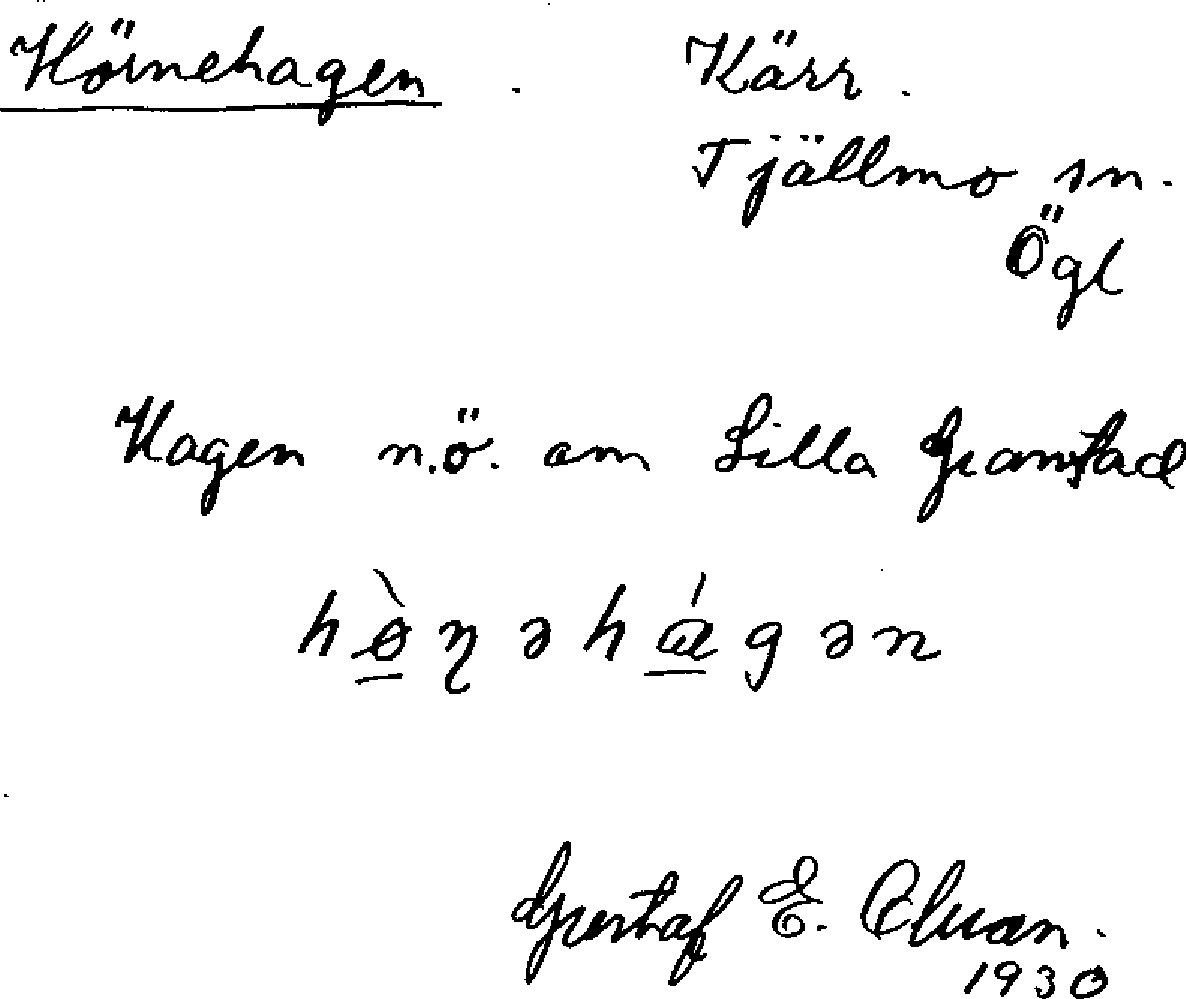 Hörnehagen. Kärr.
Tjällmo sn.
Ögl
Hagen n.ö. om Lilla Granstad
hö̀ṇəhágən
Gustaf E.
1930